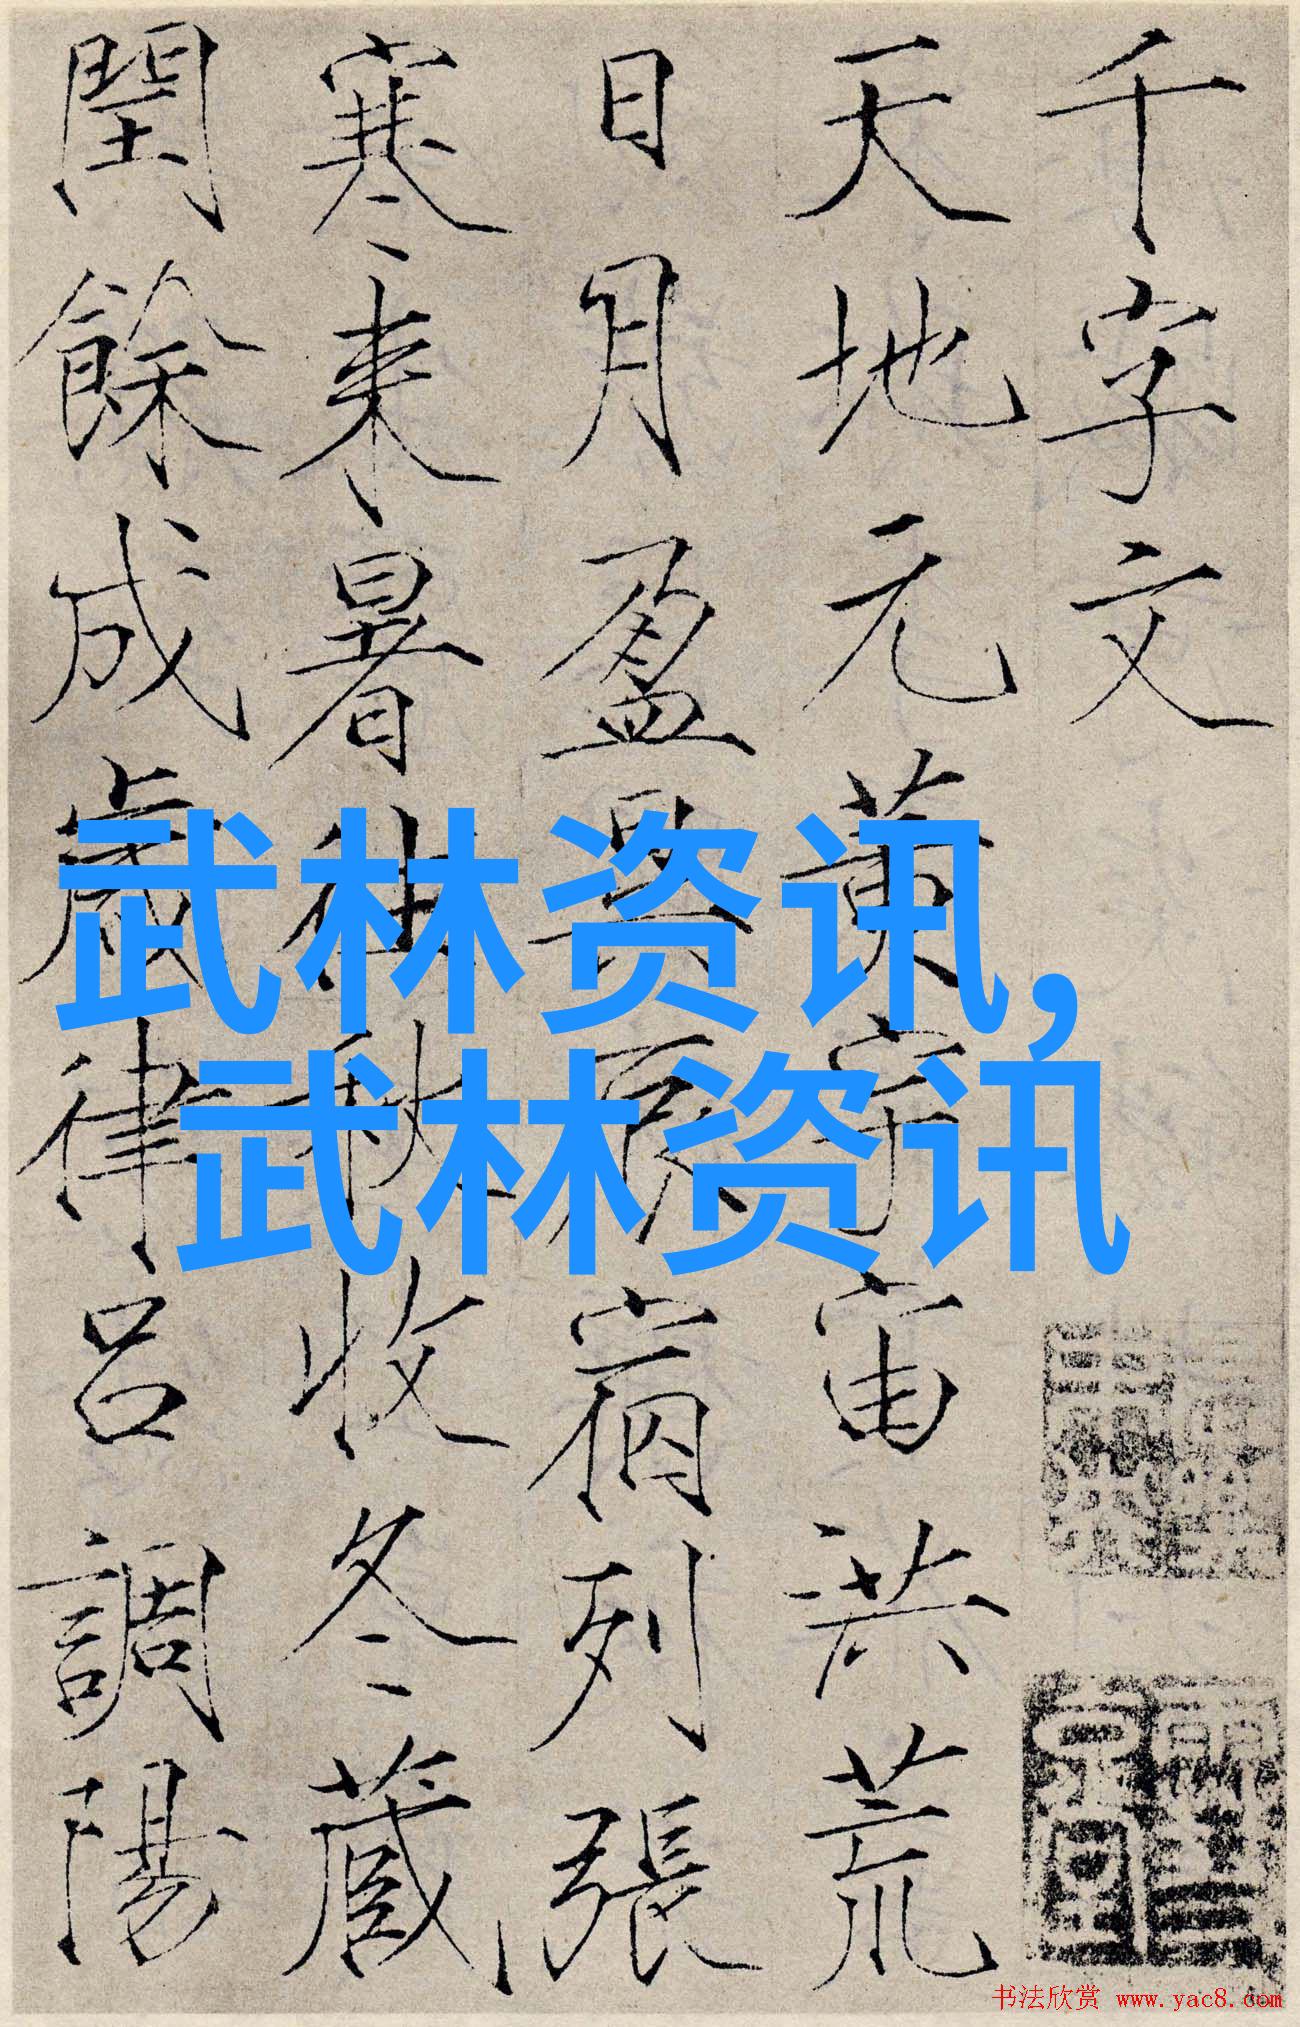 千字文
天地元黃宇宙洪荒
日月盈昃辰宿列張
寒来暑往秋收冬藏
閏餘成歲律呂調陽
武林资讯,
武林资讯
书法欣赏 www.yac8.com